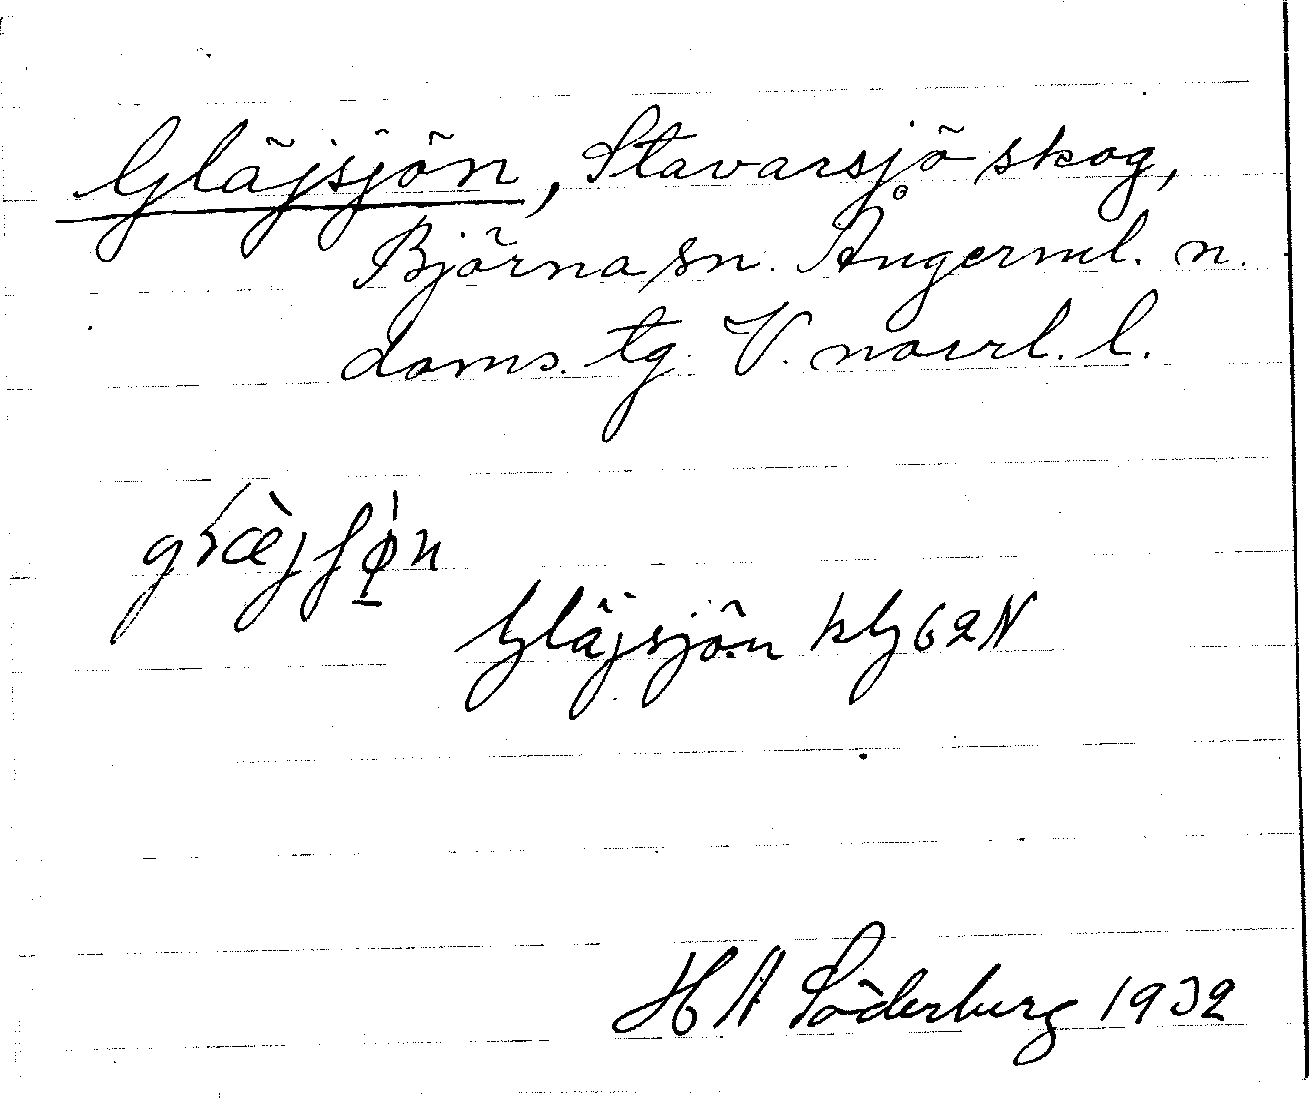 Gläjsjön, Stavarsjö skog,
Björna sn. Ångerml. n.
doms. tg. V. norrl. l.
Gläjsjön klg 62 N
H A Söderberg 1932